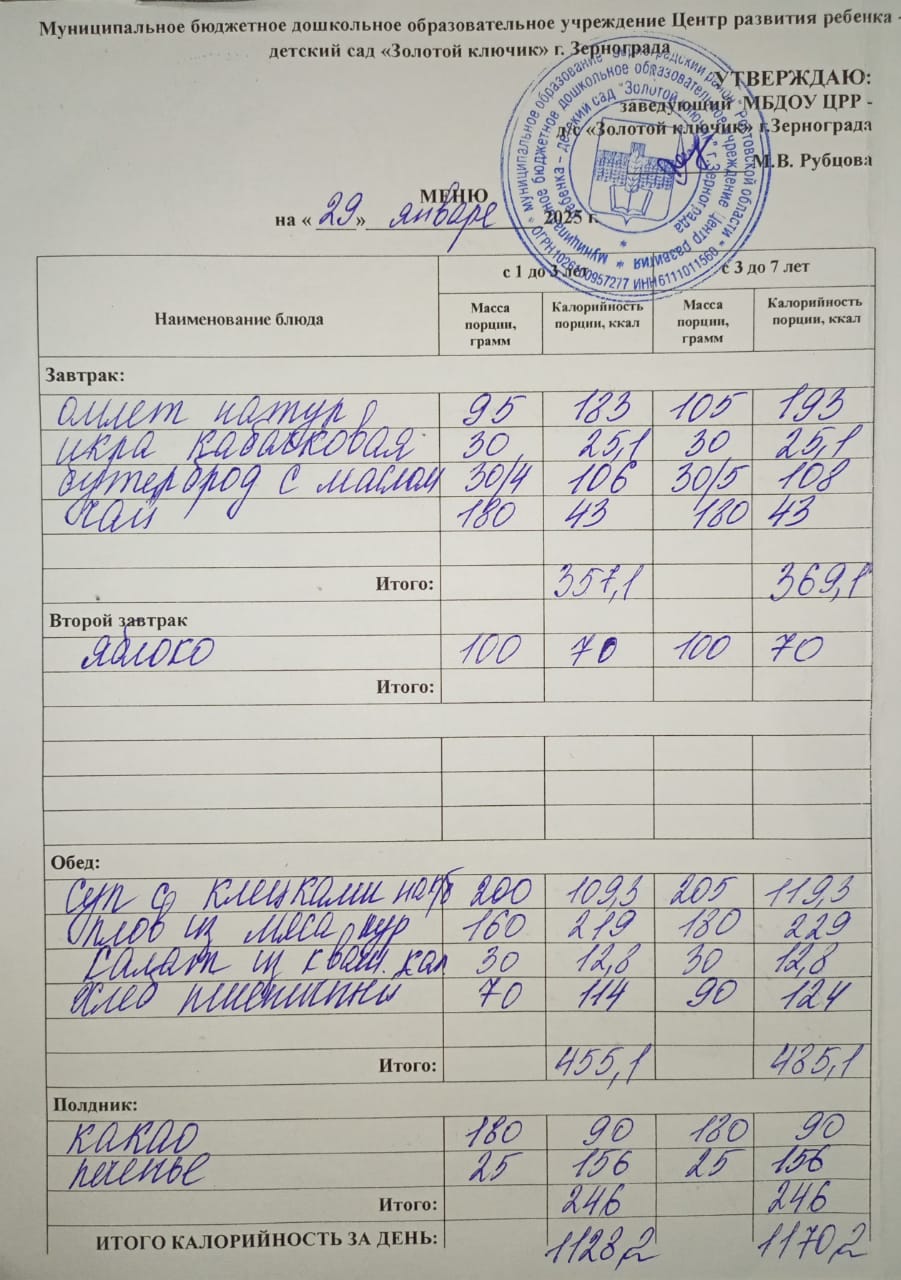 Муниципальное бюджетное дошкольное образовательное учреждение Центр развития ребенка -
детский сад «Золотой ключик» г. Зернограда
УТВЕРЖДАЮ:
заведующий МБДОУ ЦРР -
д/с «Золотой ключик» г.Зернограда
М.В. Рубцова
МЕНЮ
на « 29 » январе 2025 г.
с 1 до 3 лет с 3 до 7 лет
Наименование блюда Масса порции, грамм Калорийность порции, ккал Масса порции, грамм Калорийность порции, ккал
Завтрак:
омлет натур 95 183 105 193
икра кабачковая 30 25,1 30 25,1
бутерброд с маслом 30/4 106 30/5 108
чай 180 43 180 43
Итого: 357,1 369,1
Второй завтрак
яблоко 100 70 100 70
Итого:
Обед:
суп с клецками на 200 109,3 205 119,3
плов из мяса кур 160 219 180 229
салат из кваш. кап 30 12,8 30 12,8
хлеб пшеничный 70 114 90 124
Итого: 455,1 485,1
Полдник:
какао 180 90 180 90
печенье 25 156 25 156
Итого: 246 246
ИТОГО КАЛОРИЙНОСТЬ ЗА ДЕНЬ: 1128,2 1170,2